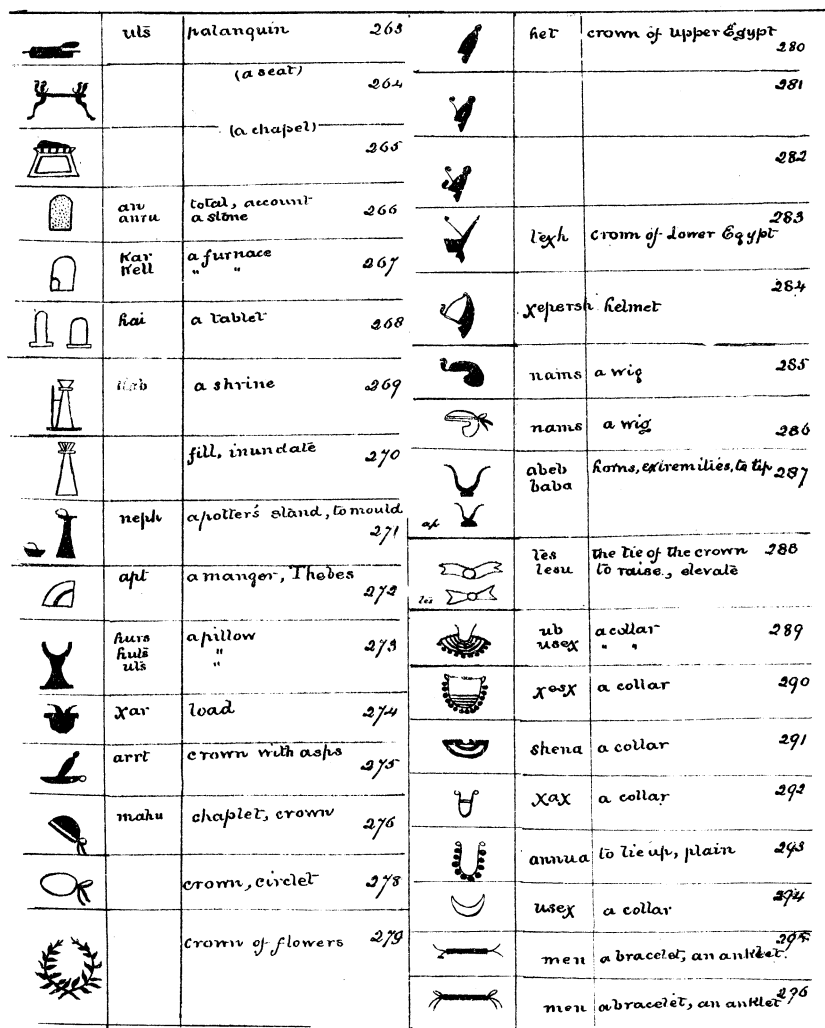 utš palanquin 263
(a seat) 264
(a chapel) 265
an total, account
anru a stone 266
Kar a furnace
Kell " " 267
hai a tablet 268
a shrine 269
fill, inundate 270
neph a potter's stand, to mould
271
apt a manger, Thebes
272
hurs a pillow 273
hutš "
utš "
χar load 274
arrt crown with asps
275
mahu chaplet, crown 276
crown, circlet 278
crown of flowers 279
het crown of Upper Egypt
280
281
282
283
teχh crown of Lower Egypt
284
χepersh helmet
nams a wig 285
nams a wig 286
abeb horns, extremities, to tip 287
baba
ap
tes the tie of the crown 288
tesu to raise, elevate
tes
ub a collar 289
useχ " "
χesχ a collar 290
shena a collar 291
χaχ a collar 292
annua to tie up, plain 293
useχ a collar 294
295
men a bracelet, an anklet.
men a bracelet, an anklet 296